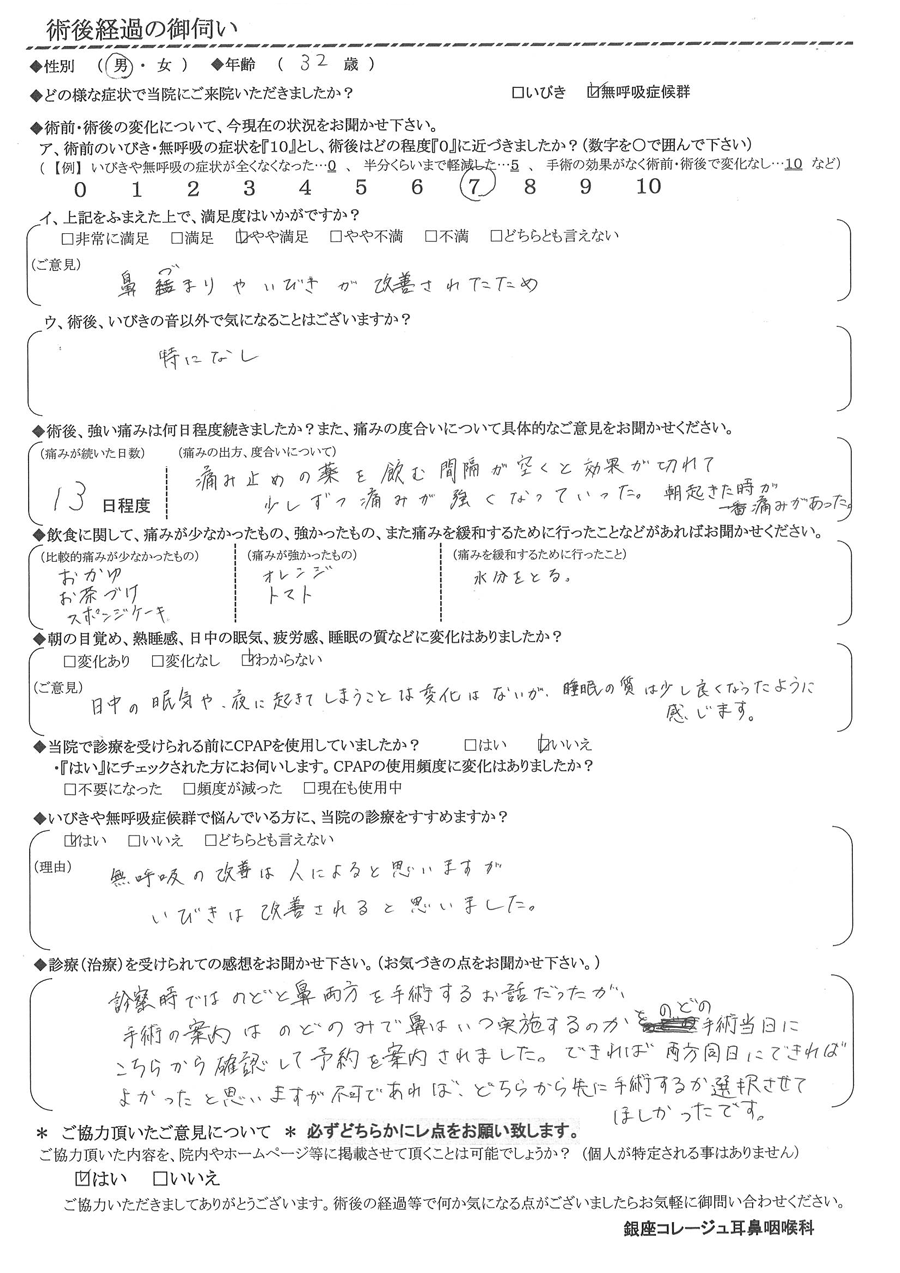 術後経過の御伺い
◆性別 (男・女) ◆年齢 (32歳)
◆どの様な症状で当院にご来院いただきましたか? □いびき ☑無呼吸症候群
◆術前・術後の変化について、今現在の状況をお聞かせ下さい。
ア、術前のいびき・無呼吸の症状を『10』とし、術後はどの程度『0』に近づきましたか?(数字を〇で囲んで下さい)
(【例】いびきや無呼吸の症状が全くなくなった…0 、 半分くらいまで軽減した…5 、 手術の効果がなく術前・術後で変化なし…10 など)
0 1 2 3 4 5 6 7 8 9 10
イ、上記をふまえた上で、満足度はいかがですか?
□非常に満足 □満足 ☑やや満足 □やや不満 □不満 □どちらとも言えない
(ご意見)
づ
鼻詰まりやいびきが改善されたため
ウ、術後、いびきの音以外で気になることはございますか?
特になし
◆術後、強い痛みは何日程度続きましたか?また、痛みの度合いについて具体的なご意見をお聞かせください。
(痛みが続いた日数) (痛みの出方、度合いについて)
13日程度
痛み止めの薬を飲む間隔が空くと効果が切れて
少しずつ痛みが強くなっていった。朝起きた時が
一番痛みがあった。
◆飲食に関して、痛みが少なかったもの、強かったもの、また痛みを緩和するために行ったことなどがあればお聞かせください。
(比較的痛みが少なかったもの) (痛みが強かったもの) (痛みを緩和するために行ったこと)
おかゆ オレンジ 水分をとる。
お茶づけ トマト
スポンジケーキ
◆朝の目覚め、熟睡感、日中の眠気、疲労感、睡眠の質などに変化はありましたか?
□変化あり □変化なし ☑わからない
(ご意見)
日中の眠気や、夜に起きてしまうことは変化はないが、睡眠の質は少し良くなったように
感じます。
◆当院で診療を受けられる前にCPAPを使用していましたか? □はい ☑いいえ
・『はい』にチェックされた方にお伺いします。CPAPの使用頻度に変化はありましたか?
□不要になった □頻度が減った □現在も使用中
◆いびきや無呼吸症候群で悩んでいる方に、当院の診療をすすめますか?
☑はい □いいえ □どちらとも言えない
(理由)
無呼吸の改善は人によると思いますが
いびきは改善されると思いました。
◆診療(治療)を受けられての感想をお聞かせ下さい。(お気づきの点をお聞かせ下さい。)
診察時ではのどと鼻両方を手術するお話だったが、
手術の案内はのどのみで鼻はいつ実施するのかをのどの手術当日に
こちらから確認して予約を案内されました。できれば両方同日にできれば
よかったと思いますが不可であれば、どちらから先に手術するか選択させて
ほしかったです。
* ご協力頂いたご意見について * 必ずどちらかにレ点をお願い致します。
ご協力頂いた内容を、院内やホームページ等に掲載させて頂くことは可能でしょうか? (個人が特定される事はありません)
☑はい □いいえ
ご協力いただきましてありがとうございます。術後の経過等で何か気になる点がございましたらお気軽に御問い合わせください。
銀座コレージュ耳鼻咽喉科